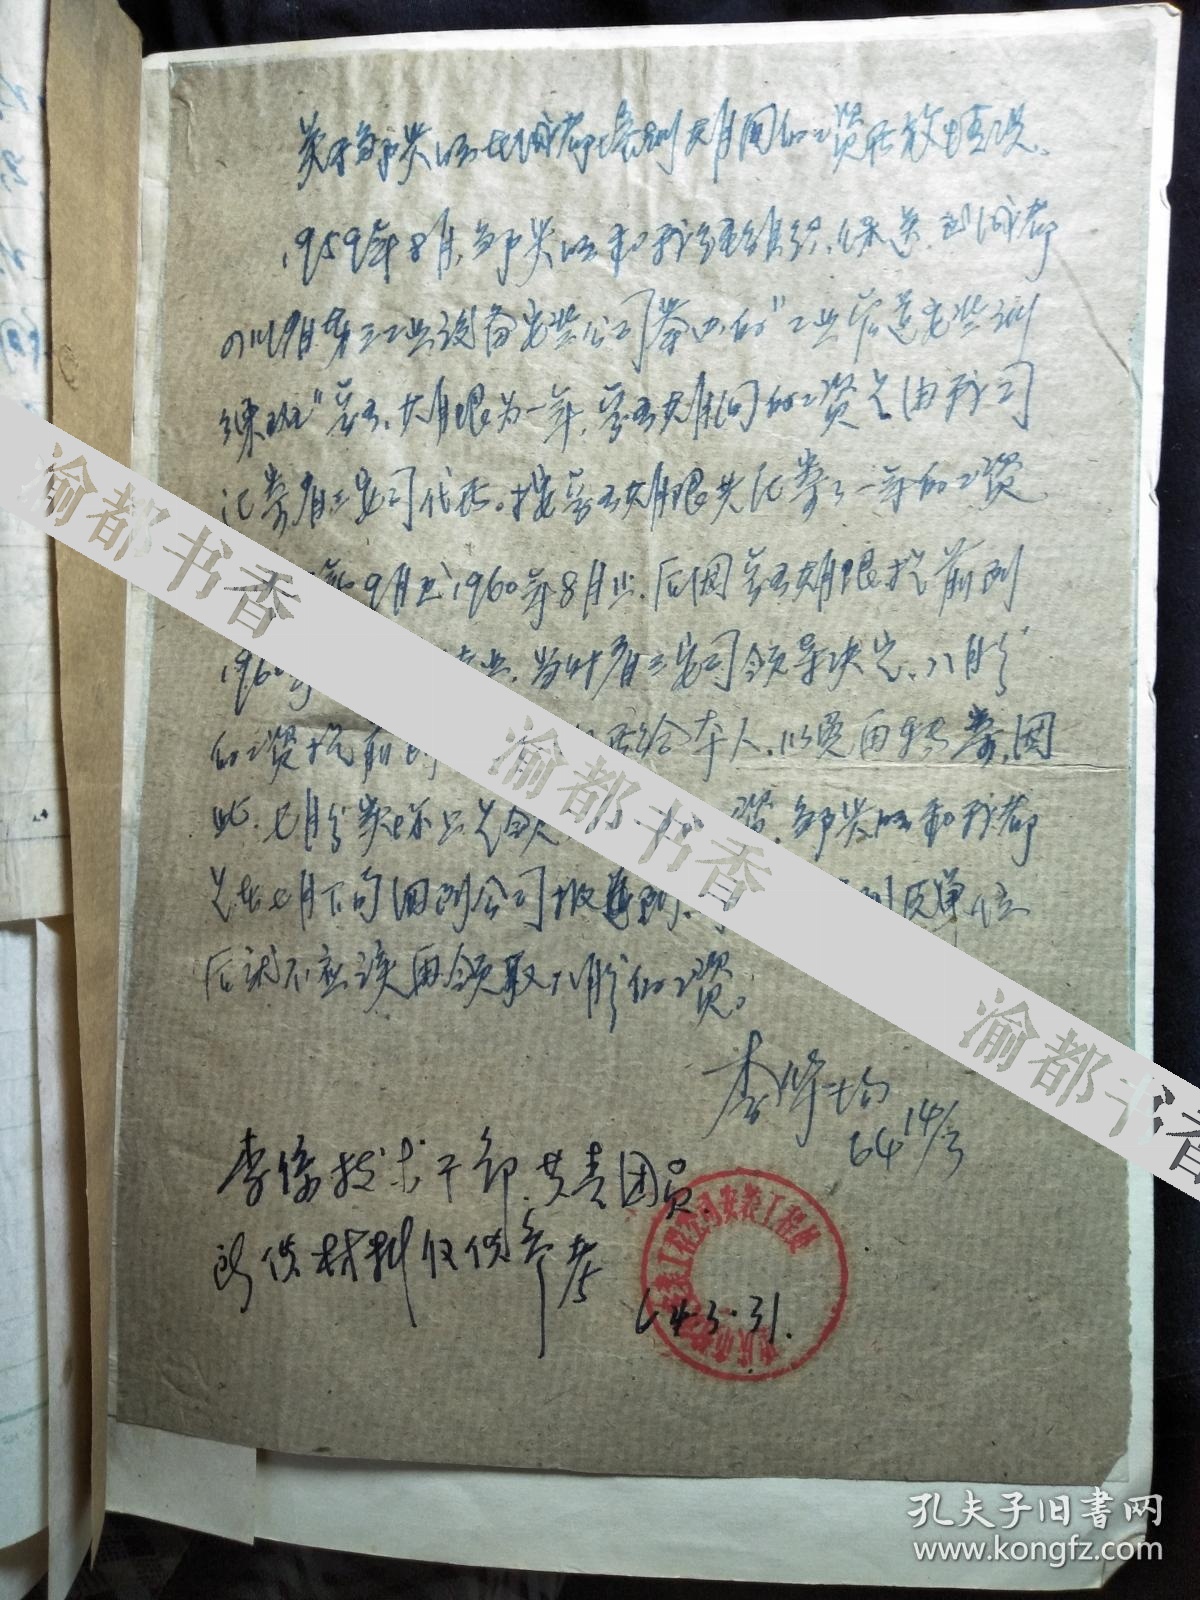 关于邹兴明在成都培训期间的工资发放情况.
1959年8月,邹兴明和我经组织保送,到成都
四川省第三工业设备安装公司举办的"工业管道安装训
练班"学习,期限为一年,学习期间的工资是由我司
汇寄省三安司代发。按学习期限共汇寄了一年的工资
9月至1960年8月止.后因学习期限提前到
1960年 业,当时省三安司领导决定,八月份
的工资提前 发给本人,以免再转寄,因
此,七月份实际上是领 资,邹兴明和我都
是在七月下旬回到公司报到, 到原单位
后就不应该再领取八月份的工资。
64 14/3
李係技术干部,共青团员,
所供材料仅供参考
64.3.31.
渝都书香
渝都书香
渝都书香
孔夫子旧书网
www.kongfz.com